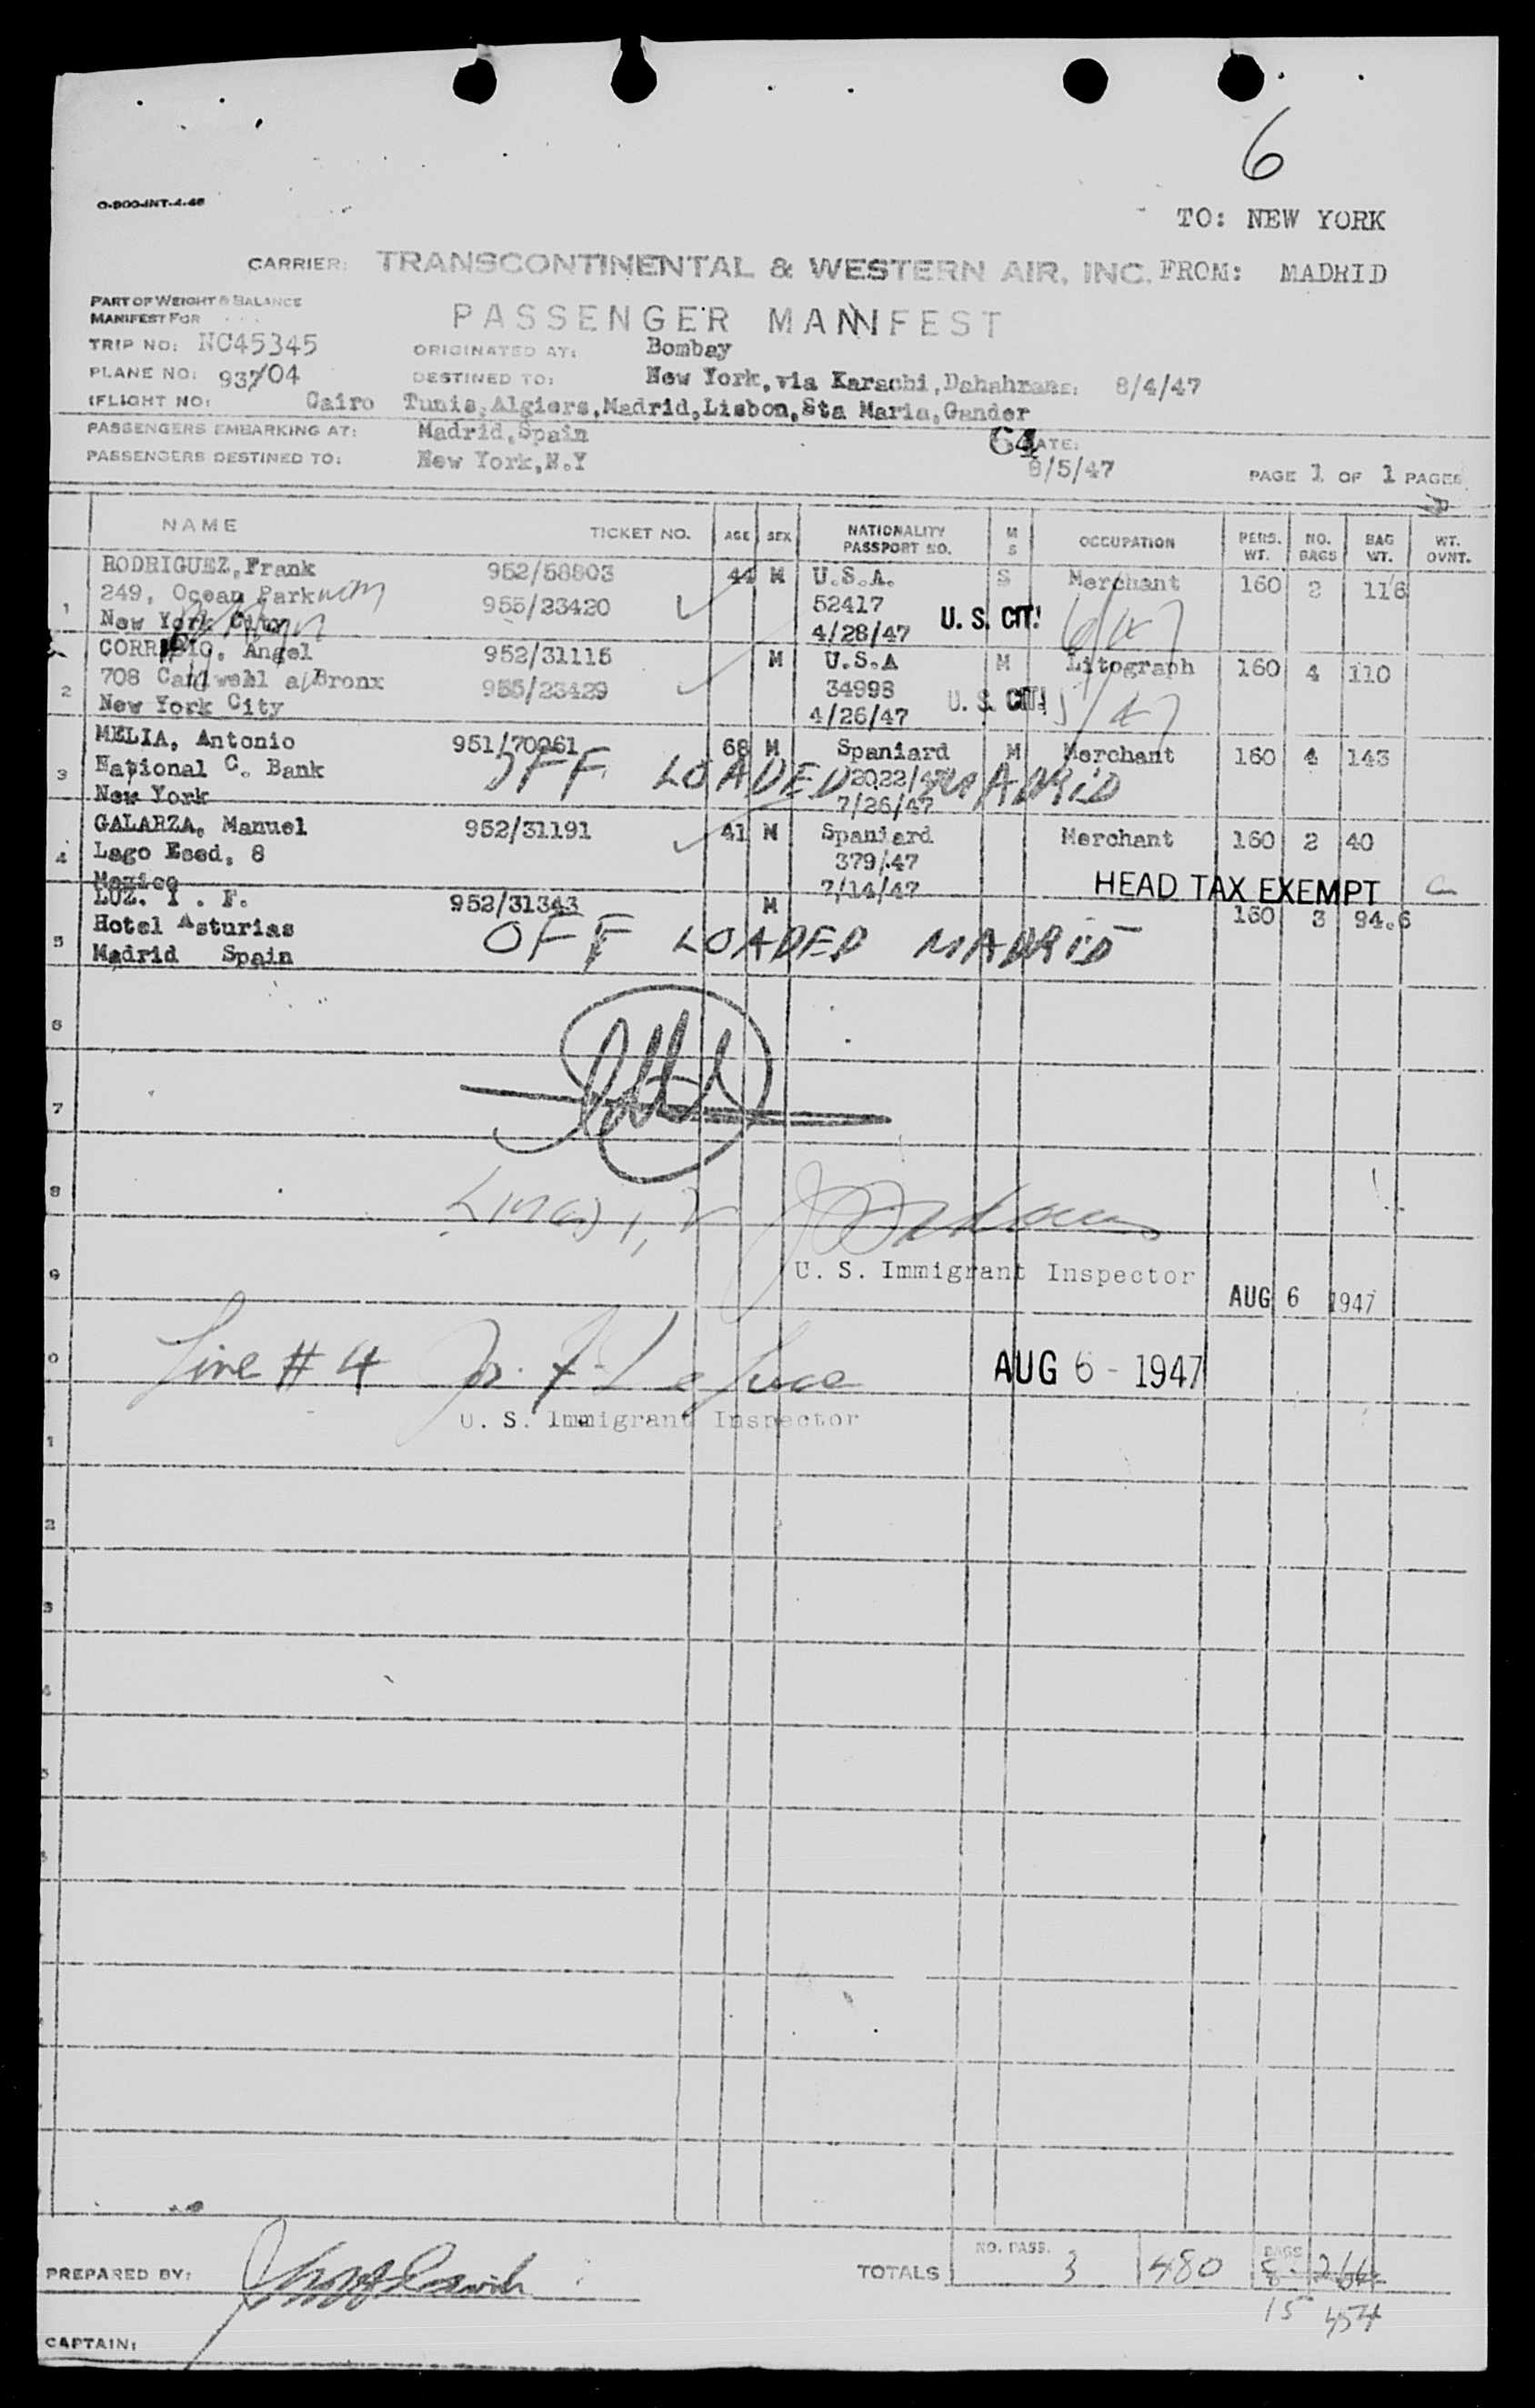 6
O-900-INT-4-46
TO: NEW YORK
CARRIER: TRANSCONTINENTAL & WESTERN AIR, INC. FROM: MADRID
PART OF WEIGHT & BALANCE
MANIFEST FOR
PASSENGER MANIFEST
TRIP NO: NC45345 ORIGINATED AT: Bombay
PLANE NO: 937/04 DESTINED TO: New York, via Karachi, Dahahrans. 8/4/47
FLIGHT NO: Cairo Tunis, Algiers, Madrid, Lisbon, Sta Maria, Gander
PASSENGERS EMBARKING AT: Madrid, Spain
64 DATE:
PASSENGERS DESTINED TO: New York, N.Y 8/5/47 PAGE 1 OF 1 PAGES
NAME TICKET NO. AGE SEX NATIONALITY PASSPORT NO. M S OCCUPATION PERS. WT. NO. BAGS BAG WT. WT. OVNT.
RODRIGUEZ, Frank 952/58803 44 M U.S.A. S Merchant 160 2 116
1 249, Ocean Park 955/23420 52417 U. S. CIT!
New York City 4/28/47
Angel 952/31115 M U.S.A M Litograph 160 4 110
2 708 Bronx 955/23429 34998 U. S. CIT!
New York City 4/26/47
MELIA, Antonio 951/70061 68 M Spaniard M Merchant 160 4 143
3 National C. Bank OFF LOADED MADRID
New York 7/26/47
GALARZA, Manuel 952/31191 41 M Spaniard Merchant 160 2 40
4 Lago Esed, 8 379/47
Mexico 7/14/47 HEAD TAX EXEMPT
LUZ. I . F. 952/31343 M 160 3 94.6
5 Hotel Asturias OFF LOADED MADRID
Madrid Spain
6
7
8
Lines 1, 2
9 U. S. Immigrant Inspector AUG 6 1947
0 Line # 4 AUG 6 - 1947
U. S. Immigrant Inspector
1
2
3
PREPARED BY: TOTALS NO. PASS. 3 480 BAGS 8 264
15 454
CAPTAIN: